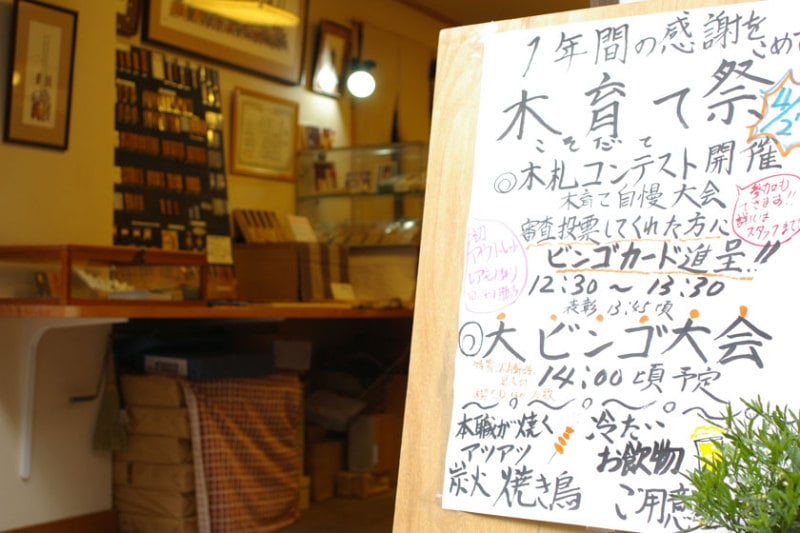 1年間の感謝をこめて
木育て祭
こそだて
4/2
◎木札コンテスト開催
木育て自慢大会
審査投票してくれた方に
ビンゴカード進呈!!
12:30〜13:30
表彰 13:45頃
◎大ビンゴ大会
14:00頃予定
本職が焼く
アツアツ
炭火焼き鳥
冷たい
お飲物
ご用意